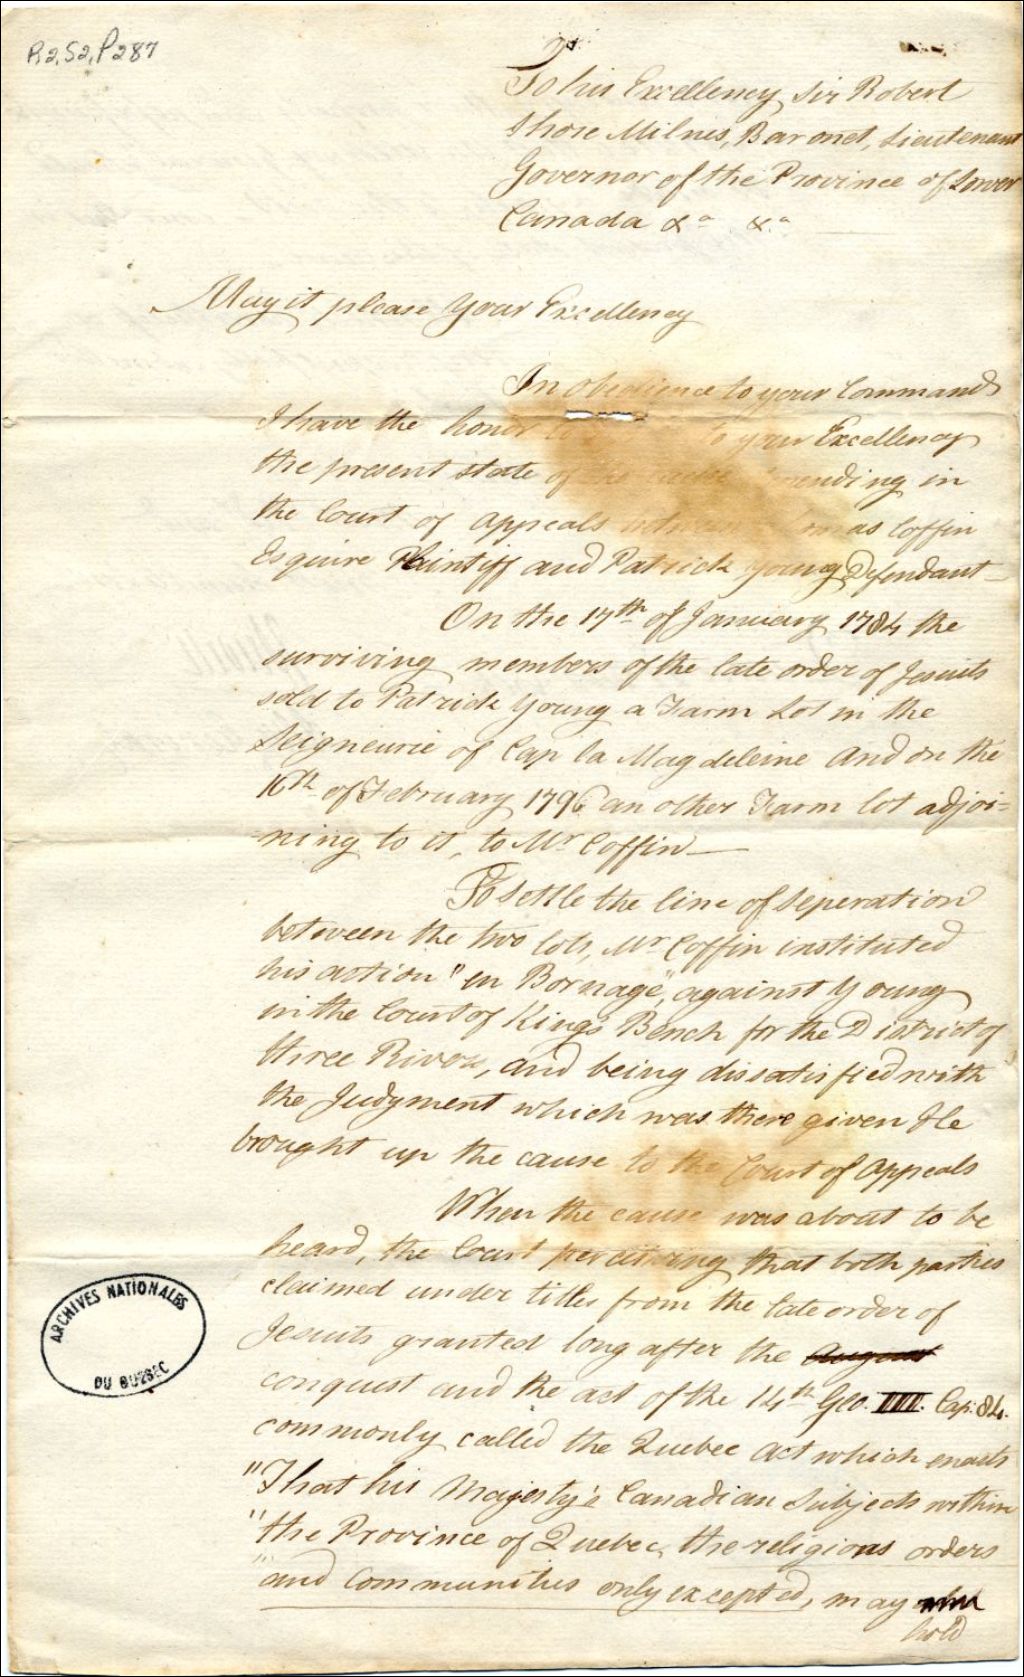 P2,S2,P287
To his Excellency Sir Robert
Shore Milnes, Baronet, Lieutenant
Governor of the Province of Lower
Canada &a &a
May it please Your Excellency
In obedience to your Commands
I have the honor to your Excellency
the present state of the pending in
the Court of Appeals between Thomas Coffin
Esquire Plaintiff and Patrick Young Defendant—
On the 17th of January 1784 the
surviving members of the late order of Jesuits
sold to Patrick Young a Farm Lot in the
Seigneurie of Cap la Magdeleine And on the
16th of February 1796 an other Farm lot adjoi=
=ning to it, to Mr Coffin—
To settle the line of seperation
between the two lots, Mr Coffin instituted
his action "en Bornage", against Young
in the Court of Kings Bench for the District of
three Rivers, and being dissatisfied with
the Judgment which was there given He
brought up the cause to the Court of Appeals
When the cause was about to be
heard, the Court perceiving that both parties
claimed under titles from the late order of
Jesuits granted long after the August
conquest and the act of the 14th Geo. III. Cap: 84.
commonly called the Quebec Act which enacts
"That his Majesty's Canadian Subjects within
"the Province of Quebec, the religious orders
"and Communities only excepted, may
hold
ARCHIVES NATIONALES
DU QUEBEC